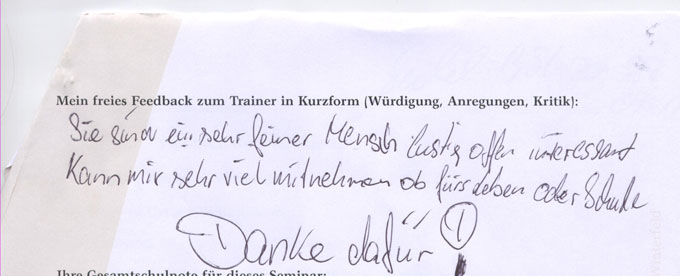 Mein freies Feedback zum Trainer in Kurzform (Würdigung, Anregungen, Kritik):
Sie sind ein sehr feiner Mensch lustig offen interessant
Kann mir sehr viel mitnehmen ob fürs Leben oder Schule
Danke dafür!
Ihre Gesamtschulnote für dieses Seminar: